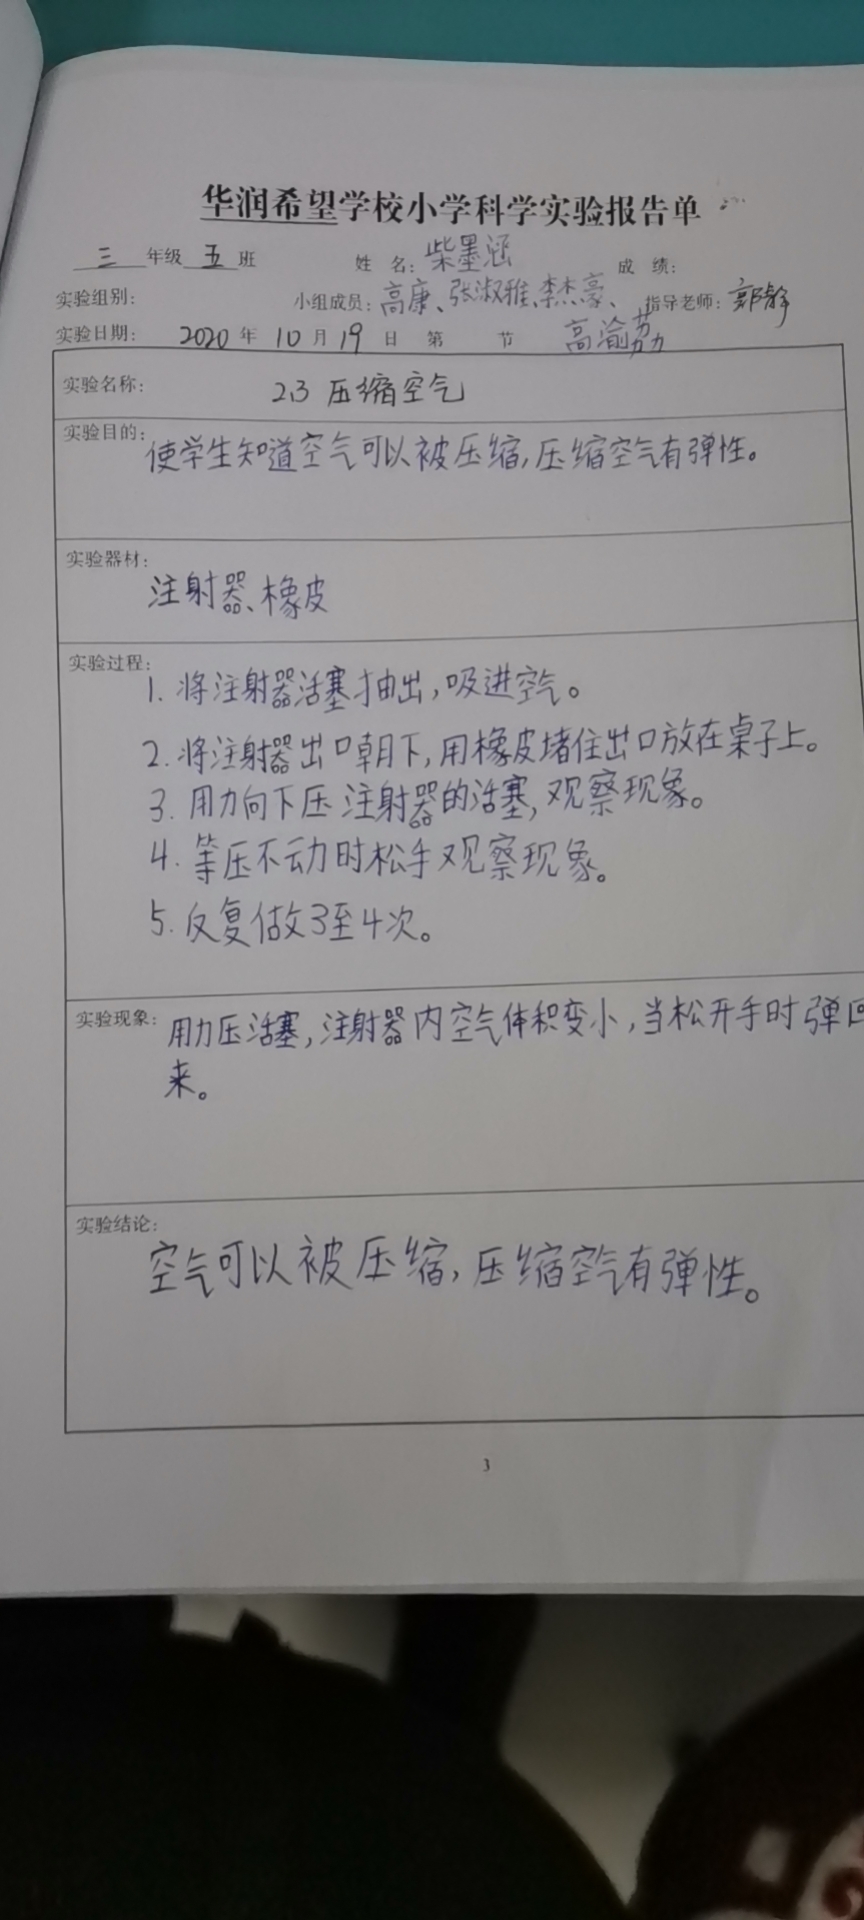 华润希望学校小学科学实验报告单
三 年级 五 班 姓 名: 柴墨涵 成 绩:
实验组别: 小组成员: 高康、张淑雅、李杰豪、 指导老师: 郭静
实验日期: 2020 年 10 月 19 日 第 节 高渝茘
实验名称: 2.3 压缩空气
实验目的: 使学生知道空气可以被压缩,压缩空气有弹性。
实验器材:
注射器、橡皮
实验过程:
1. 将注射器活塞抽出,吸进空气。
2. 将注射器出口朝下,用橡皮堵住出口放在桌子上。
3. 用力向下压注射器的活塞,观察现象。
4. 等压不动时松手观察现象。
5. 反复做3至4次。
实验现象: 用力压活塞,注射器内空气体积变小,当松开手时弹回
来。
实验结论:
空气可以被压缩,压缩空气有弹性。
3